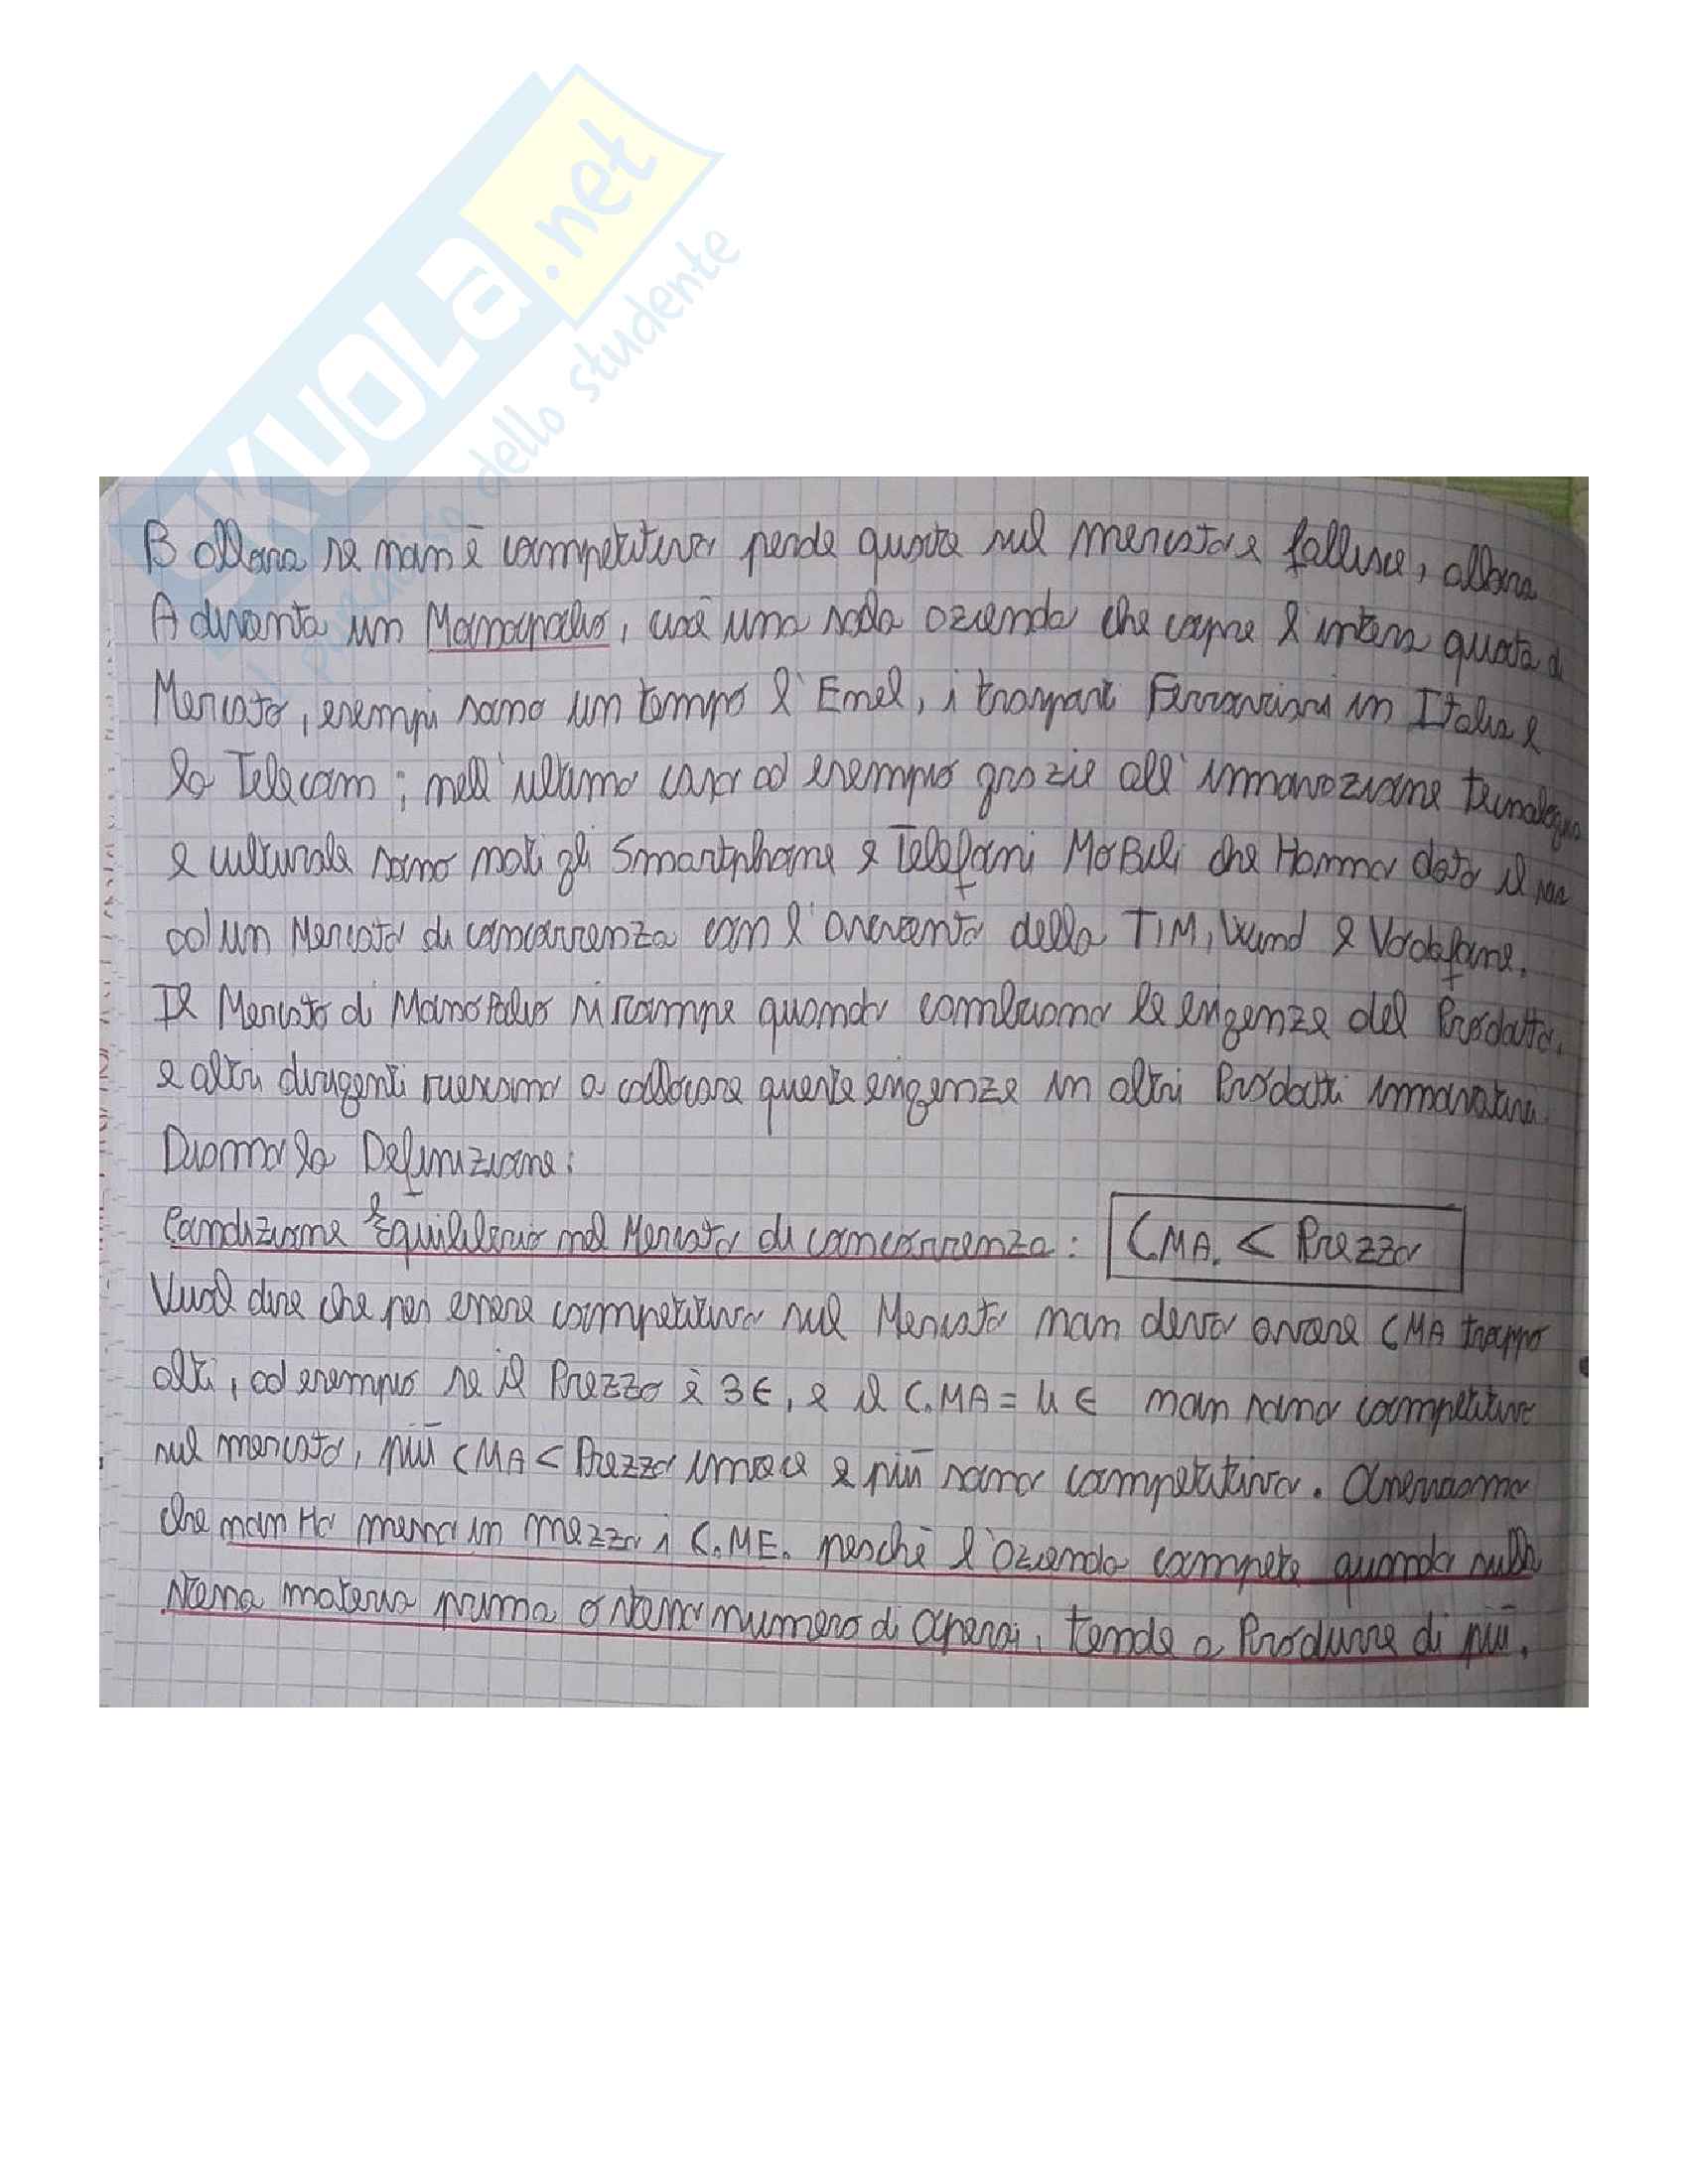 SKUOLa.net
il paradiso dello studente
B allora se non è competitiva perde quote sul mercato e fallisce, allora
A diventa un Monopolio, cioè una sola azienda che copre l'intera quota di
Mercato, esempi sono un tempo l'Enel, i trasporti Ferroviari in Italia e
la Telecom; nell'ultimo caso ad esempio grazie all'innovazione tecnologica
e culturale sono nati gli Smartphone e Telefoni Mobili che Hanno dato il
ad un Mercato di concorrenza con l'avvento della TIM, Wind e Vodafone.
Il Mercato di Monopolio si rompe quando cambiano le esigenze del Prodotto,
e altri dirigenti riescono a collocare queste esigenze in altri Prodotti innovativi.
Diamo la Definizione:
Condizione Equilibrio nel Mercato di concorrenza: CMA. < Prezzo
Vuol dire che per essere competitivo sul Mercato non devo avere CMA troppo
alti, ad esempio se il Prezzo è 3€, e il C.MA = 4€ non sono competitivo
sul mercato, più CMA < Prezzo invece e più sono competitivo. Osserviamo
che non Ho messo in mezzo i C.ME. perchè l'azienda compete quando sulla
stessa materia prima o stesso numero di operai, tende a Produrre di più.